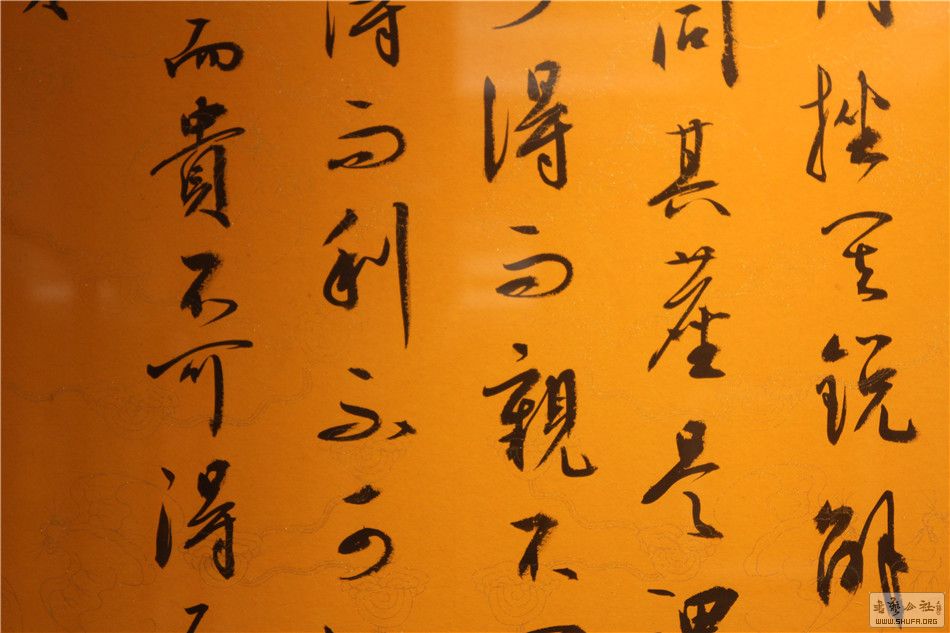 挫其銳解
同其塵是謂
得而親不
得而利不可
而貴不可得
公社
WWW.SHUFA.ORG